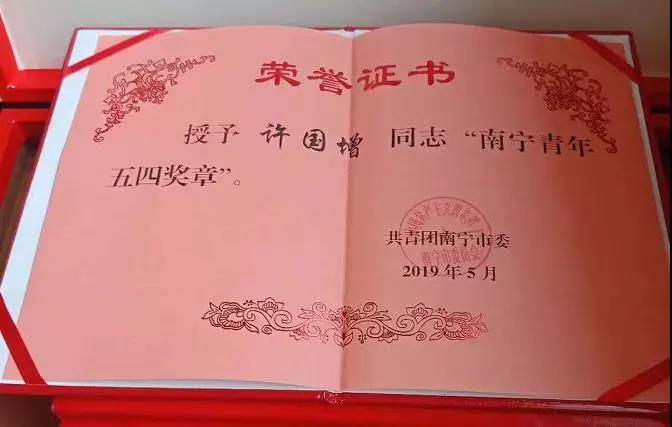 荣誉证书
授予 许国增 同志 “南宁青年
五四奖章”。
共青团南宁市委
2019年5月